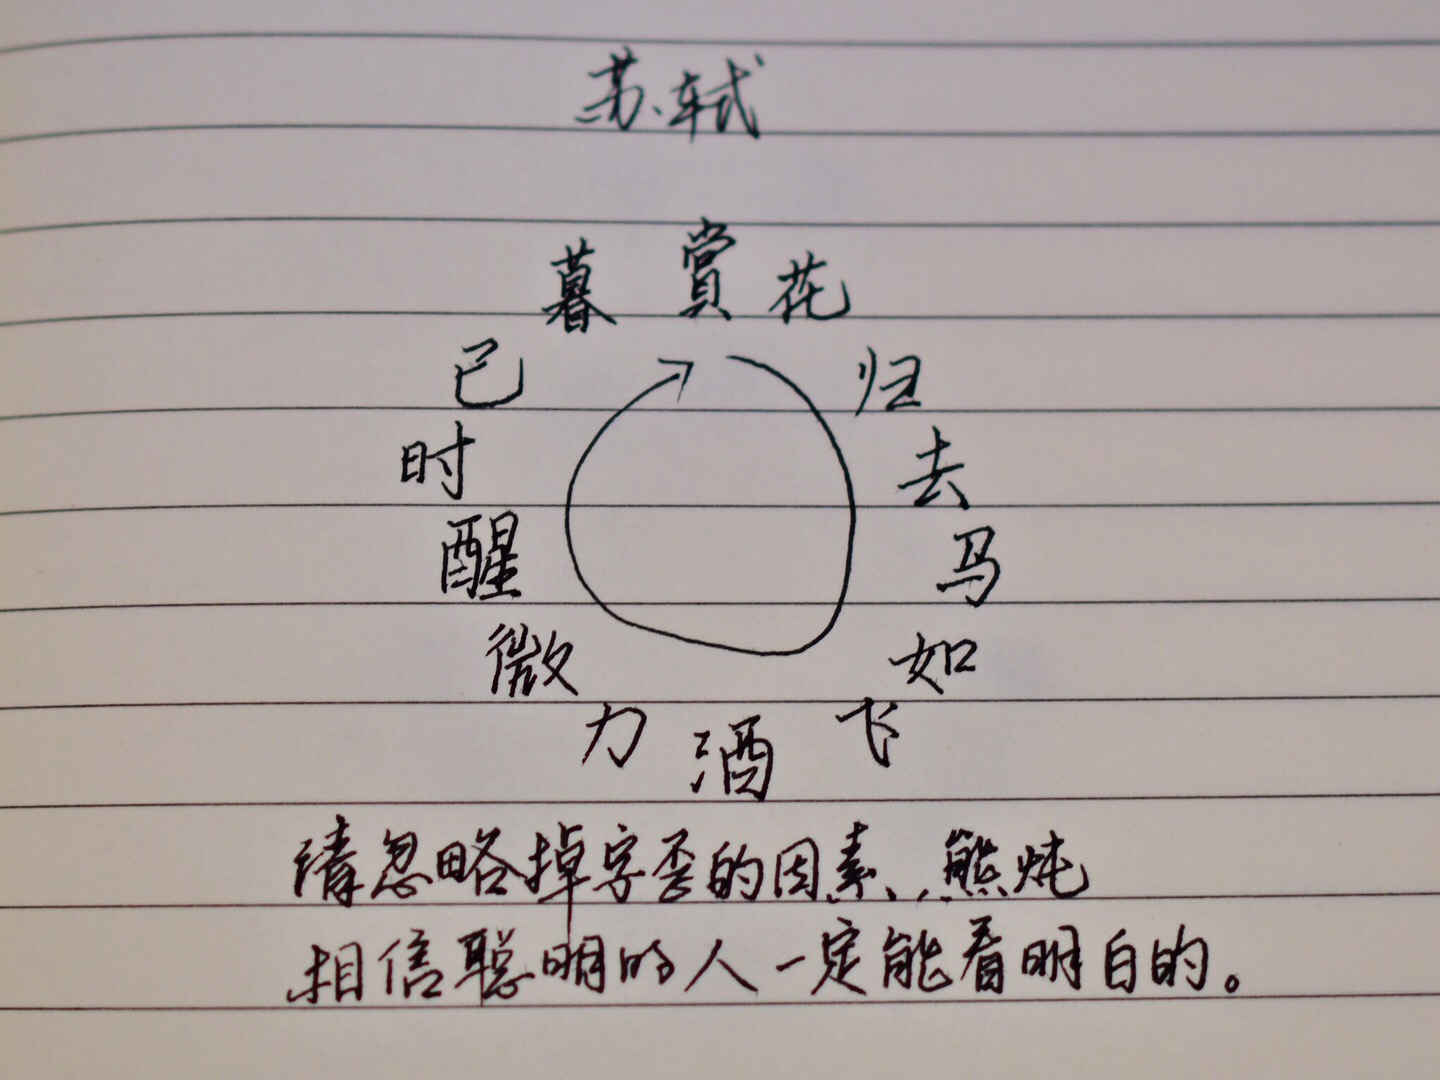 苏轼
赏花归去马如飞酒力微醒时已暮
请忽略掉字歪的因素、熊炖
相信聪明的人一定能看明白的。